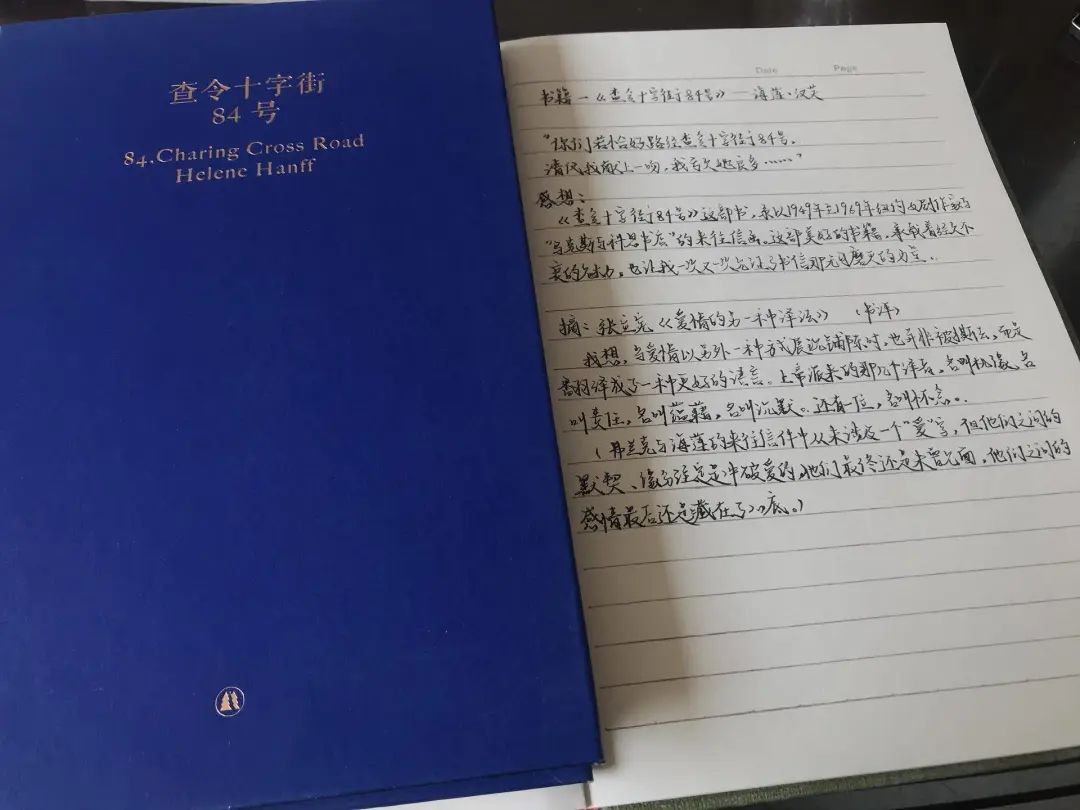 查令十字街
84 号
84,Charing Cross Road
Helene Hanff
Date Page
书籍—《查令十字街84号》— 海莲·汉芙
“你们若恰好路经查令十字街84号,
请代我献上一吻,我亏欠她良多……”
感想:
《查令十字街84号》这部书,录以1949年至1969年纽约女剧作家与
“马克斯与科恩书店”的来往信函。这部美好的书籍,承载着经久不
衰的魅力,也让我一次又一次见证了书信那无可磨灭的力量。
摘:张立宪《爱情的另一种译法》 (书评)
我想,当爱情以另外一种方式展沉铺陈时,也并非被摈去,而是
翻译成了一种更好的语言。上帝派来的那几个译者,名叫机缘,名
叫责任,名叫蕴藉,名叫沉默。还有一位,名叫怀念。
(弗兰克与海莲的来往信件中从未涉及一个“爱”字,但他们之间的
默契、缘分注定是冲破爱的,他们最终还是未曾见面,他们之间的
感情最后还是藏在了心底。)